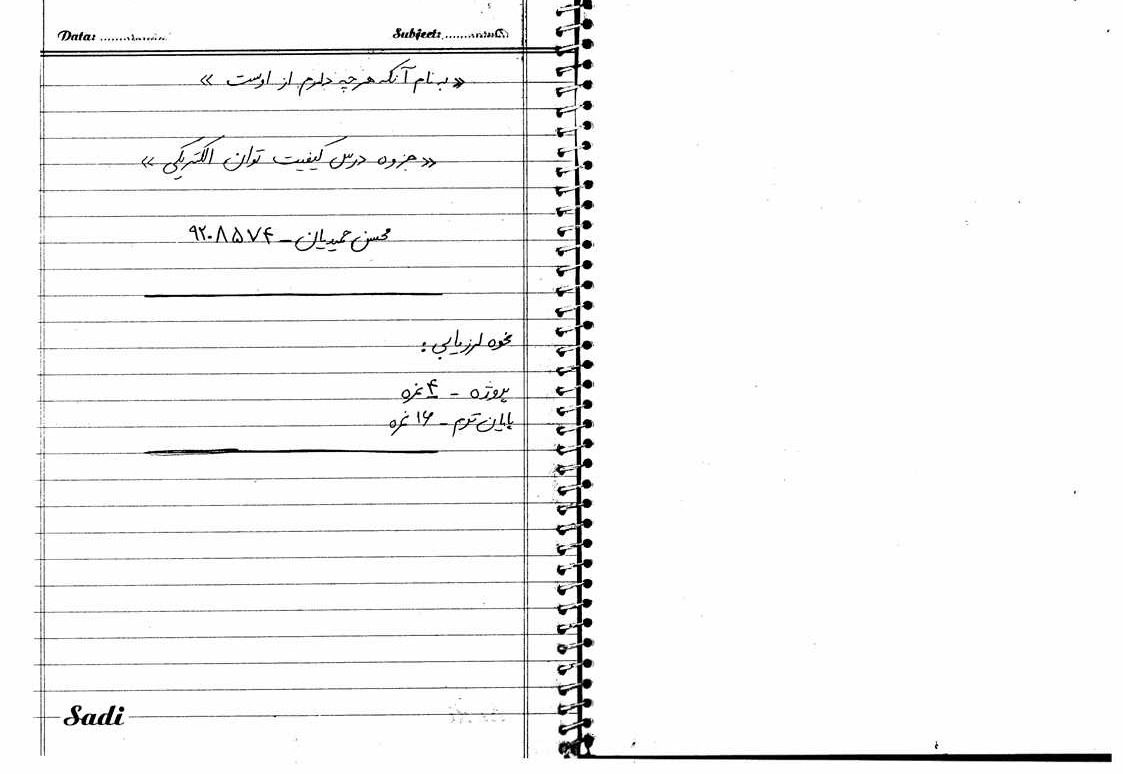 Data: ............ Subject: ............
«به نام آنکه هرچه دارم از اوست»
«جزوه درس کیفیت توان الکتریکی»
محسن حمیدیان - ۹۲۰۸۵۷۴
نحوه ارزیابی:
پروژه - ۴ نمره
پایان ترم - ۱۶ نمره
Sadi